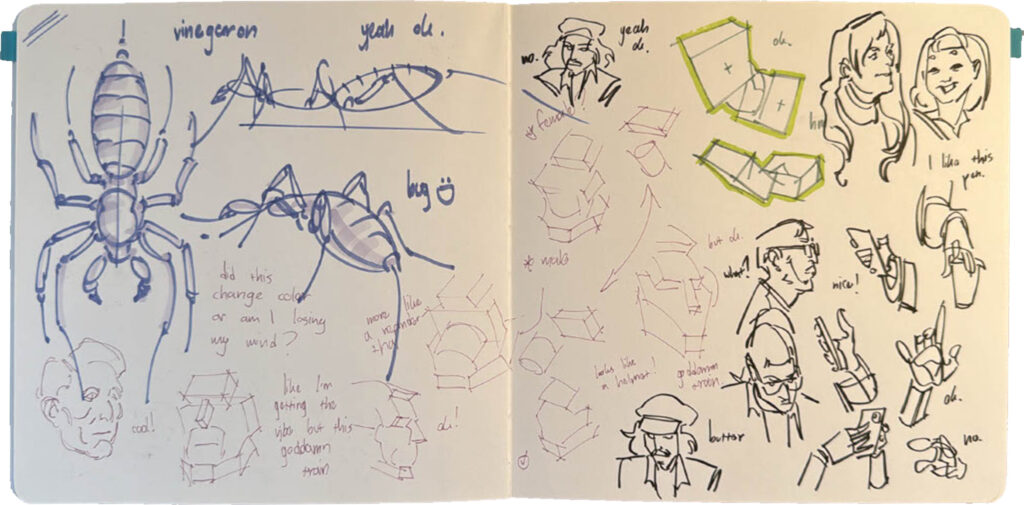 vinegaron
yeah ok.
bug
did this
change color
or am I losing
my mind?
more like
a
cool!
like I'm
getting the
vibe but this
goddamn
train
ok!
no.
yeah
ok.
ok.
hm
I like this
pen.
* female
* male
but ok.
what?
nice!
looks like
a helmet!
goddamn
train.
better
ok.
no.